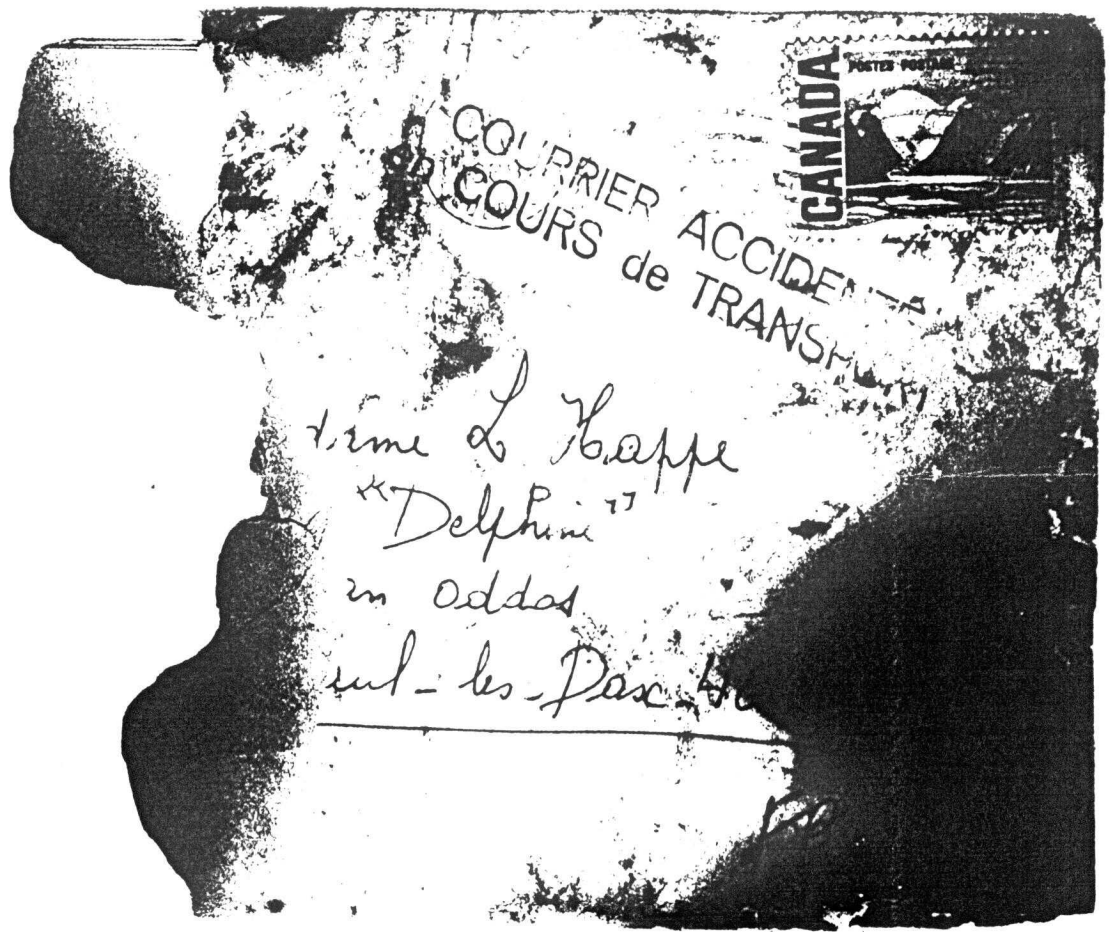 CANADA
POSTES POSTAGE
COURRIER ACCIDEN
COURS de TRANSP
L Happe
"Delphine"
en oddos
eul-les-Dax-40